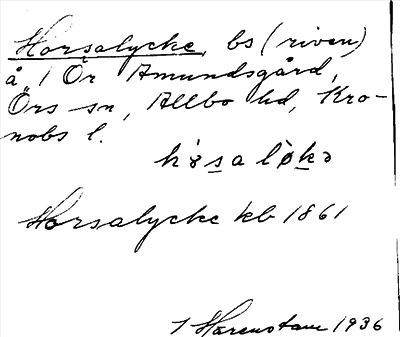 Horsalycke, bs (riven)
å 1 Ör Amundsgård,
Örs sn, Allbo hd, Kro-
nobs l.
Horsalycke kb 1861
1936